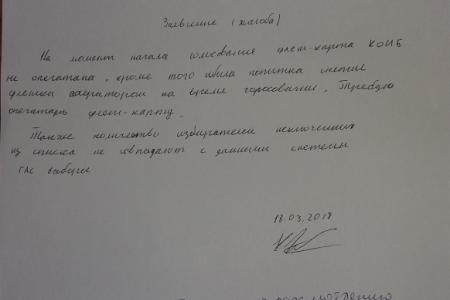 Заявление (жалоба)
На момент начала голосования флеш-карта КОИБ
не опечатана, кроме того была попытка снятия
флешки на время голосования. Требую
опечатать флеш-карту.
Также количество избирателей исключенных
из списка не совпадают с данными системы
ГАС выборы
18.03.2018